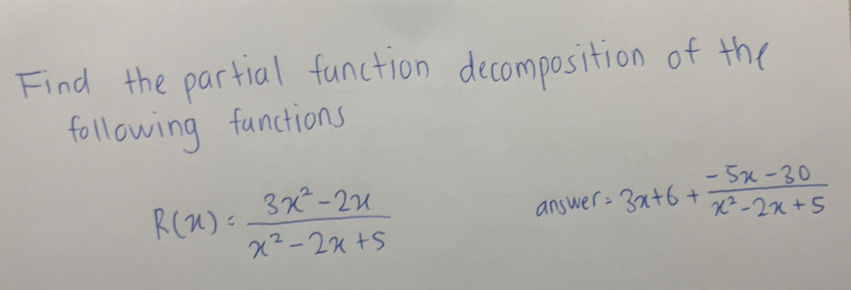 Find the partial function decomposition of the
following functions
R(x) = 3x² - 2x / x² - 2x + 5
answer = 3x+6 + -5x - 30 / x² - 2x + 5